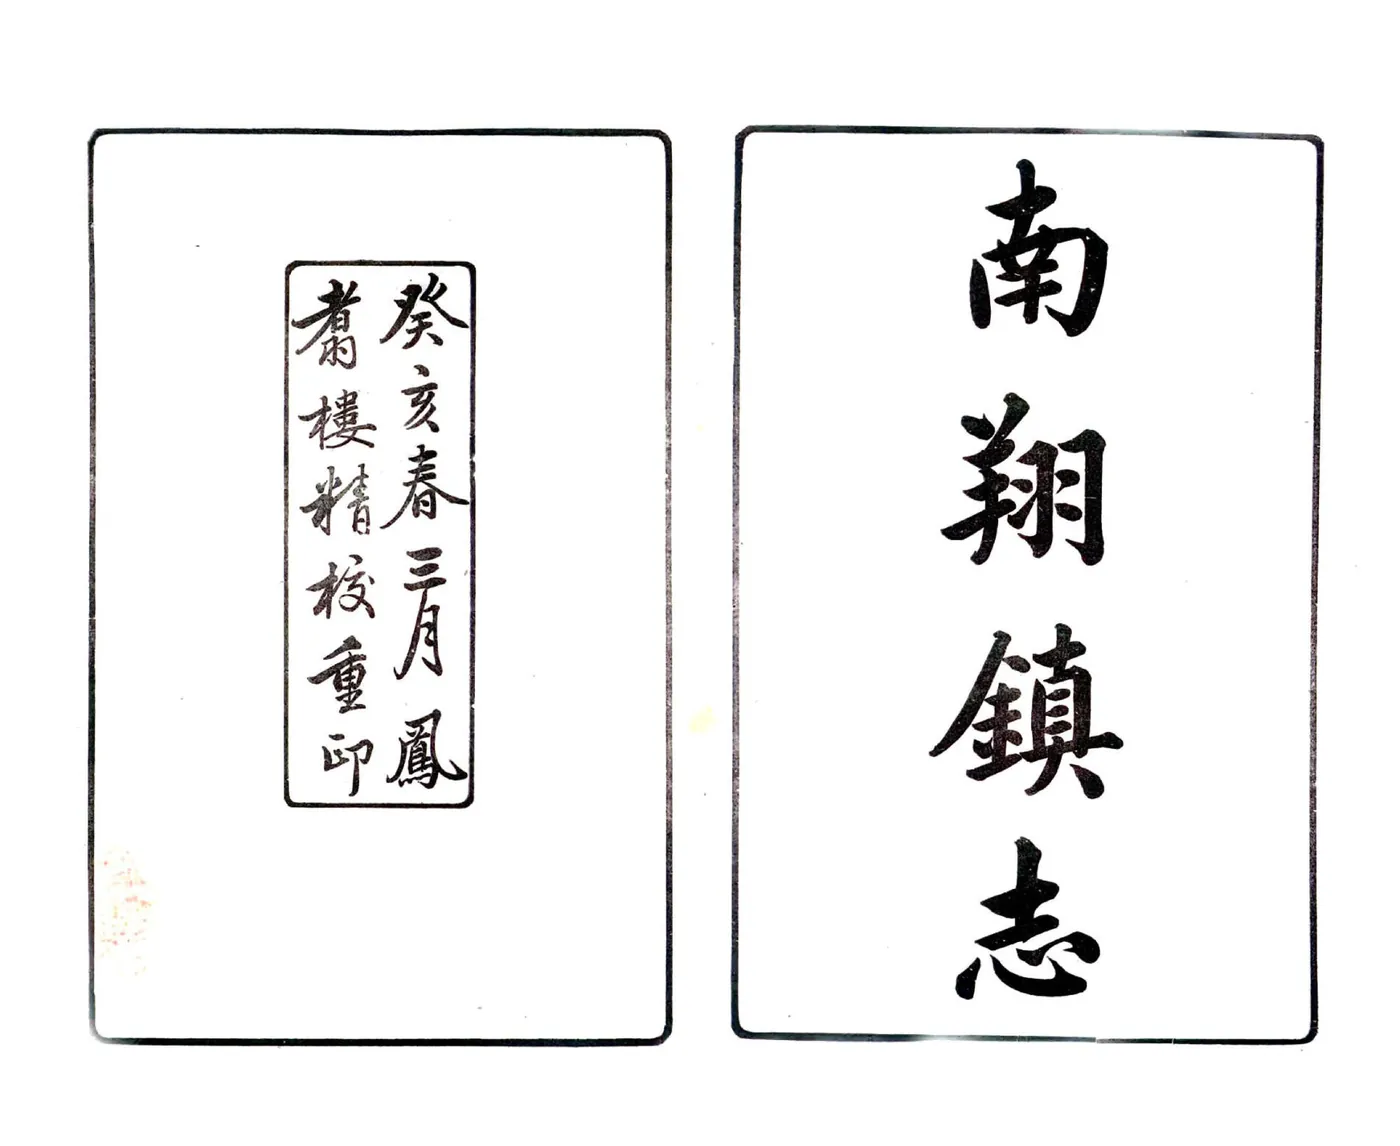 南翔鎮志
癸亥春三月鳳
翥樓精校重印